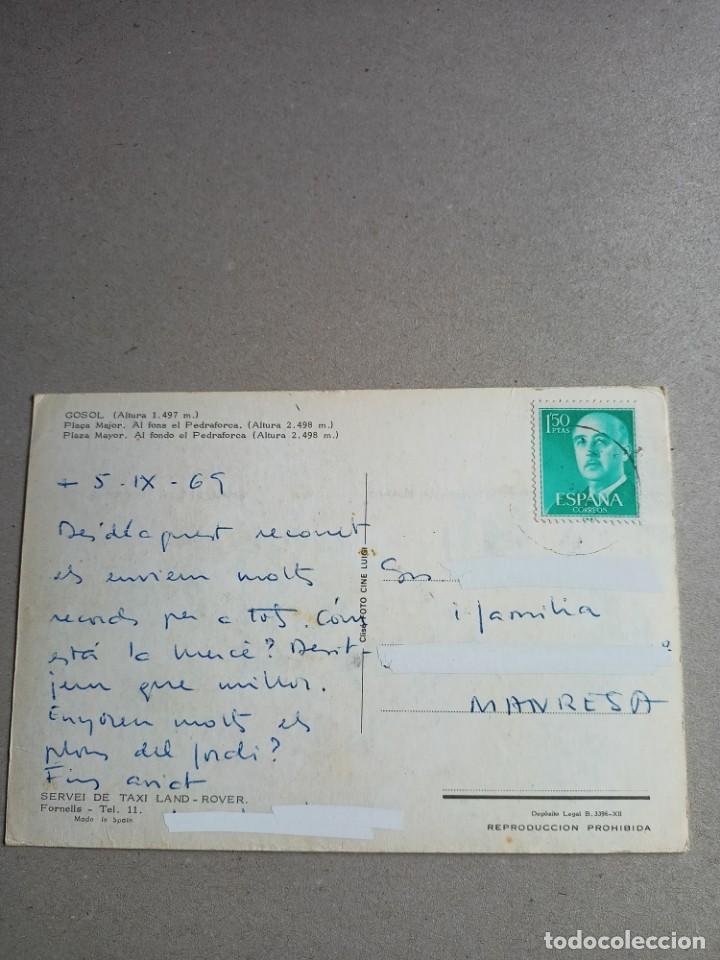 GOSOL (Altura 1.497 m.)
Plaça Major. Al fons el Pedraforca. (Altura 2.498 m.)
Plaza Mayor. Al fondo el Pedraforca (Altura 2.498 m.)
1'50
PTAS
ESPAÑA
CORREOS
+ 5-IX-69
Des d'aquest reconet
els enviem molts
records per a tots. Com
está la Mercè? Desit-
jem que millor.
Enyoren molt els
plors del Jordi?
Fins aviat
Clisé FOTO CINE LUIGI
i família
MANRESA
SERVEI DE TAXI LAND-ROVER.
Fornells - Tel. 11.
Made in Spain
Depósito Legal B. 3396-XII
REPRODUCCION PROHIBIDA
todocoleccion